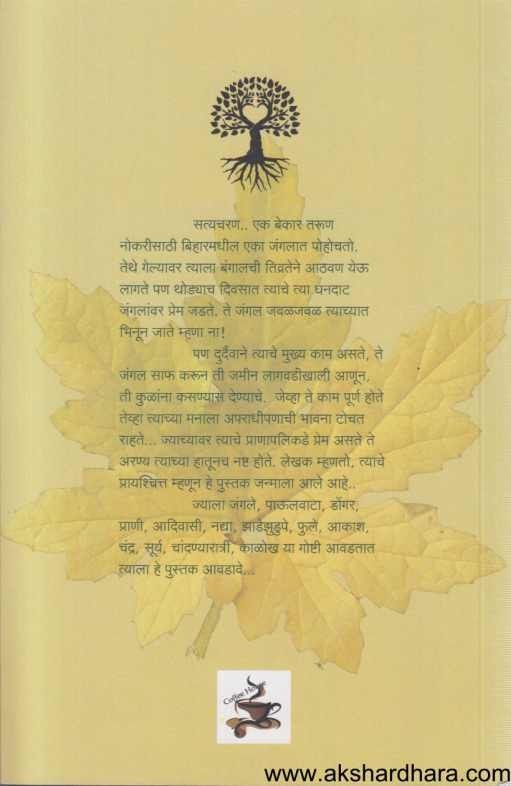 सत्यचरण.. एक बेकार तरूण
नोकरीसाठी बिहारमधील एका जंगलात पोहोचतो.
तेथे गेल्यावर त्याला बंगालची तिव्रतेने आठवण येऊ
लागते पण थोड्याच दिवसात त्याचे त्या घनदाट
जंगलांवर प्रेम जडते. ते जंगल जवळजवळ त्याच्यात
भिनून जाते म्हणा ना!
पण दुर्दैवाने त्याचे मुख्य काम असते, ते
जंगल साफ करून ती जमीन लागवडीखाली आणून,
ती कुळांना कसण्यास देण्याचे. जेव्हा ते काम पूर्ण होते
तेव्हा त्याच्या मनाला अपराधीपणाची भावना टोचत
राहते... ज्याच्यावर त्याचे प्राणापलिकडे प्रेम असते ते
अरण्य त्याच्या हातूनच नष्ट होते. लेखक म्हणतो, त्याचे
प्रायश्चित्त म्हणून हे पुस्तक जन्माला आले आहे..
ज्याला जंगले, पाऊलवाटा, डोंगर,
प्राणी, आदिवासी, नद्या, झाडेझुडुपे, फुले, आकाश,
चंद्र, सूर्य, चांदण्यारात्री, काळोख या गोष्टी आवडतात
त्याला हे पुस्तक आवडावे...
Coffee House
www.akshardhara.com